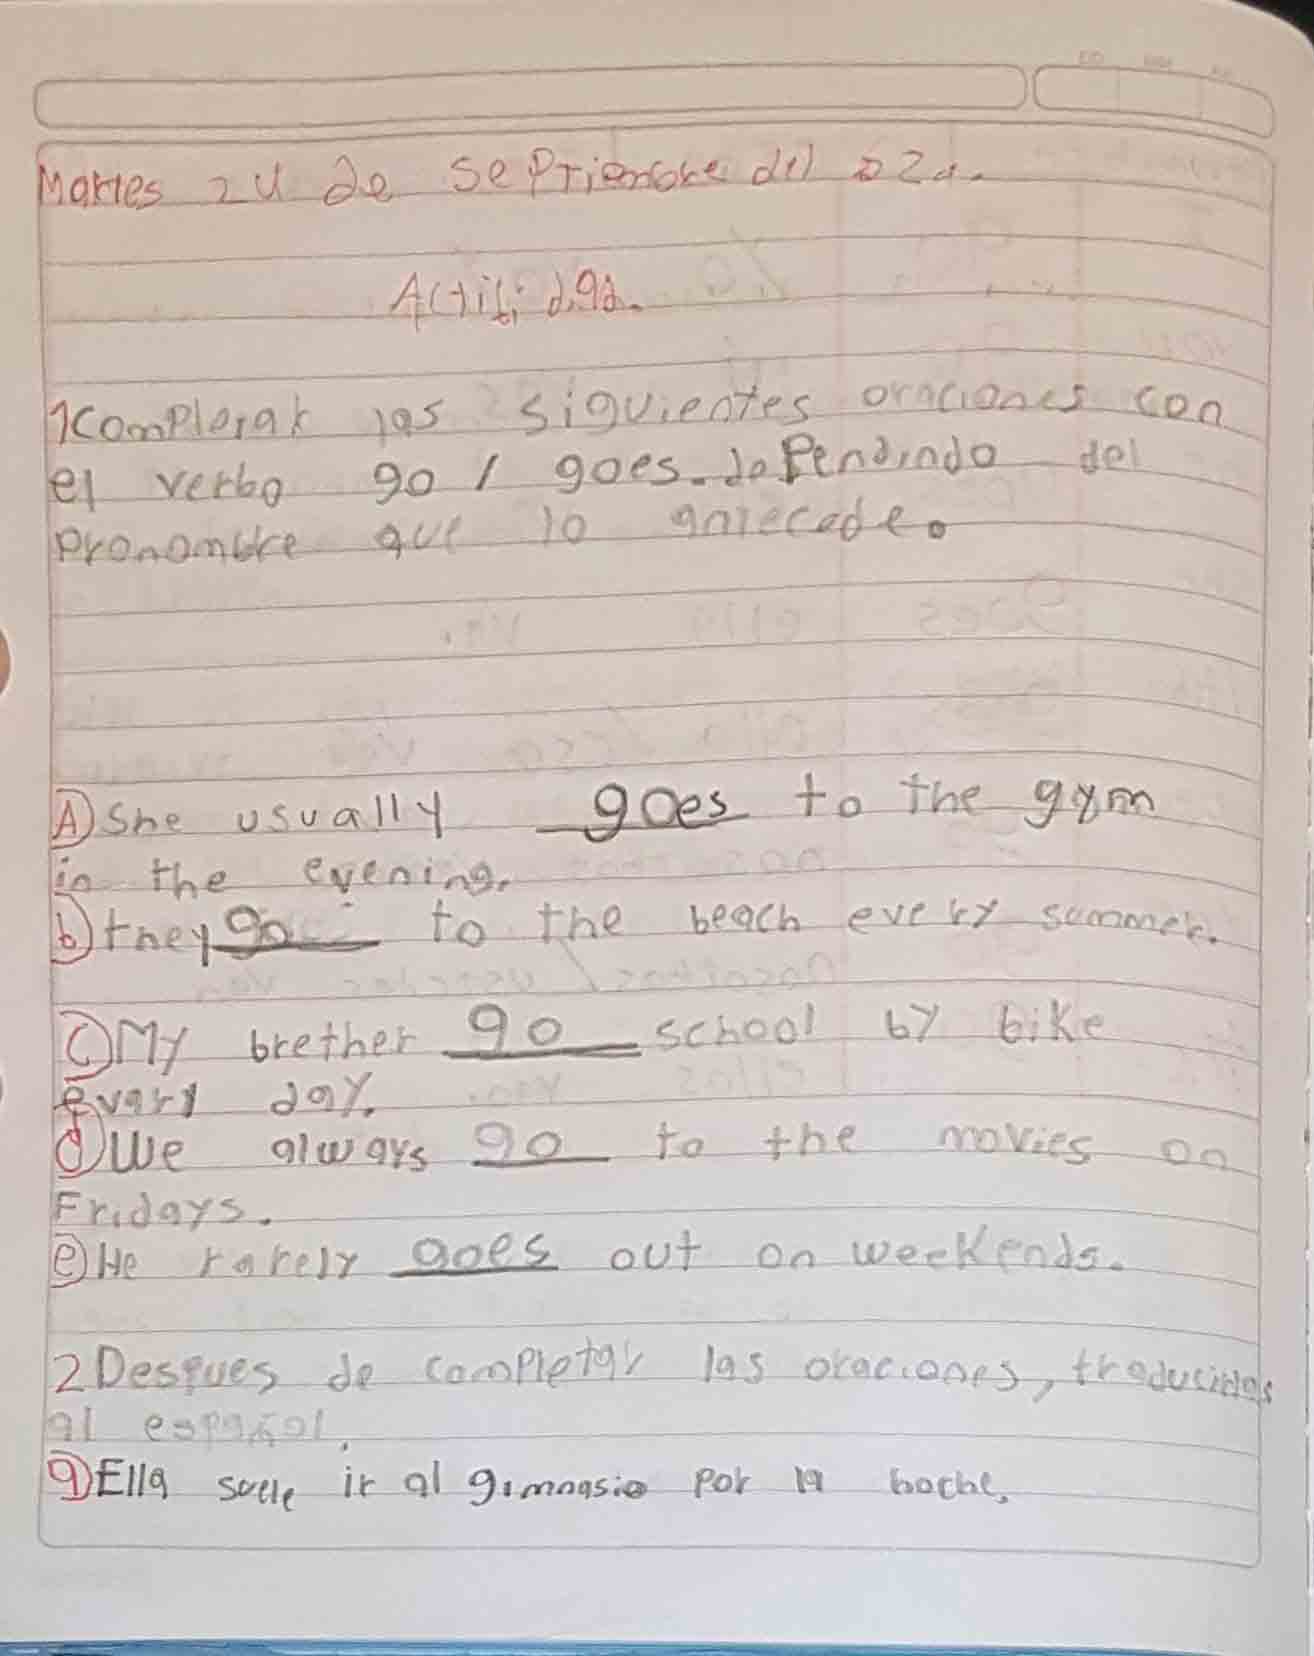 Martes 24 de septiembre del
Actitidad.
1 Completar las siguientes oraciones con
el verbo go / goes. dependindo del
pronombre que lo antecede.
A) She usually goes to the gym
in the evening.
b) they go to the beach every summer.
C) My brether go school by bike
every day.
d) We always go to the movies on
Fridays.
e) He rarely goes out on weekends.
2 Despues de completar las oraciones, traducirlas
al español.
a) Ella suele ir al gimnasio por la noche.